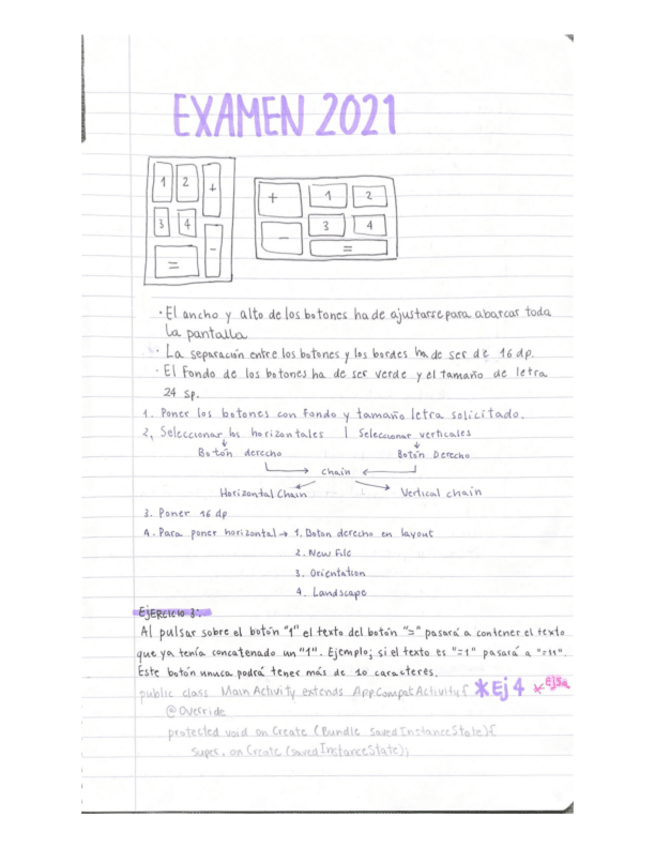 EXAMEN 2021
1 2 +
3 4 -
=
+ 1 2
- 3 4
=
· El ancho y alto de los botones ha de ajustarse para abarcar toda
la pantalla
· La separación entre los botones y los bordes ha de ser de 16 dp.
· El fondo de los botones ha de ser verde y el tamaño de letra
24 sp.
1. Poner los botones con fondo y tamaño letra solicitado.
2, Seleccionar los horizontales | Seleccionar verticales
Botón derecho Botón Derecho
chain
Horizontal Chain Vertical chain
3. Poner 16 dp
4. Para poner horizontal → 1. Boton derecho en layout
2. New File
3. Orientation
4. Landscape
EJERCICIO 3:
Al pulsar sobre el botón "1" el texto del botón "=" pasará a contener el texto
que ya tenía concatenado un "1". Ejemplo; si el texto es "=1" pasará a "=11".
Este botón unuca podrá tener más de 10 caracteres.
public class Main Activity extends AppCompatActivity{ *Ej 4 *Ej5a
@Override
protected void onCreate (Bundle savedInstanceState){
super.onCreate (savedInstanceState);